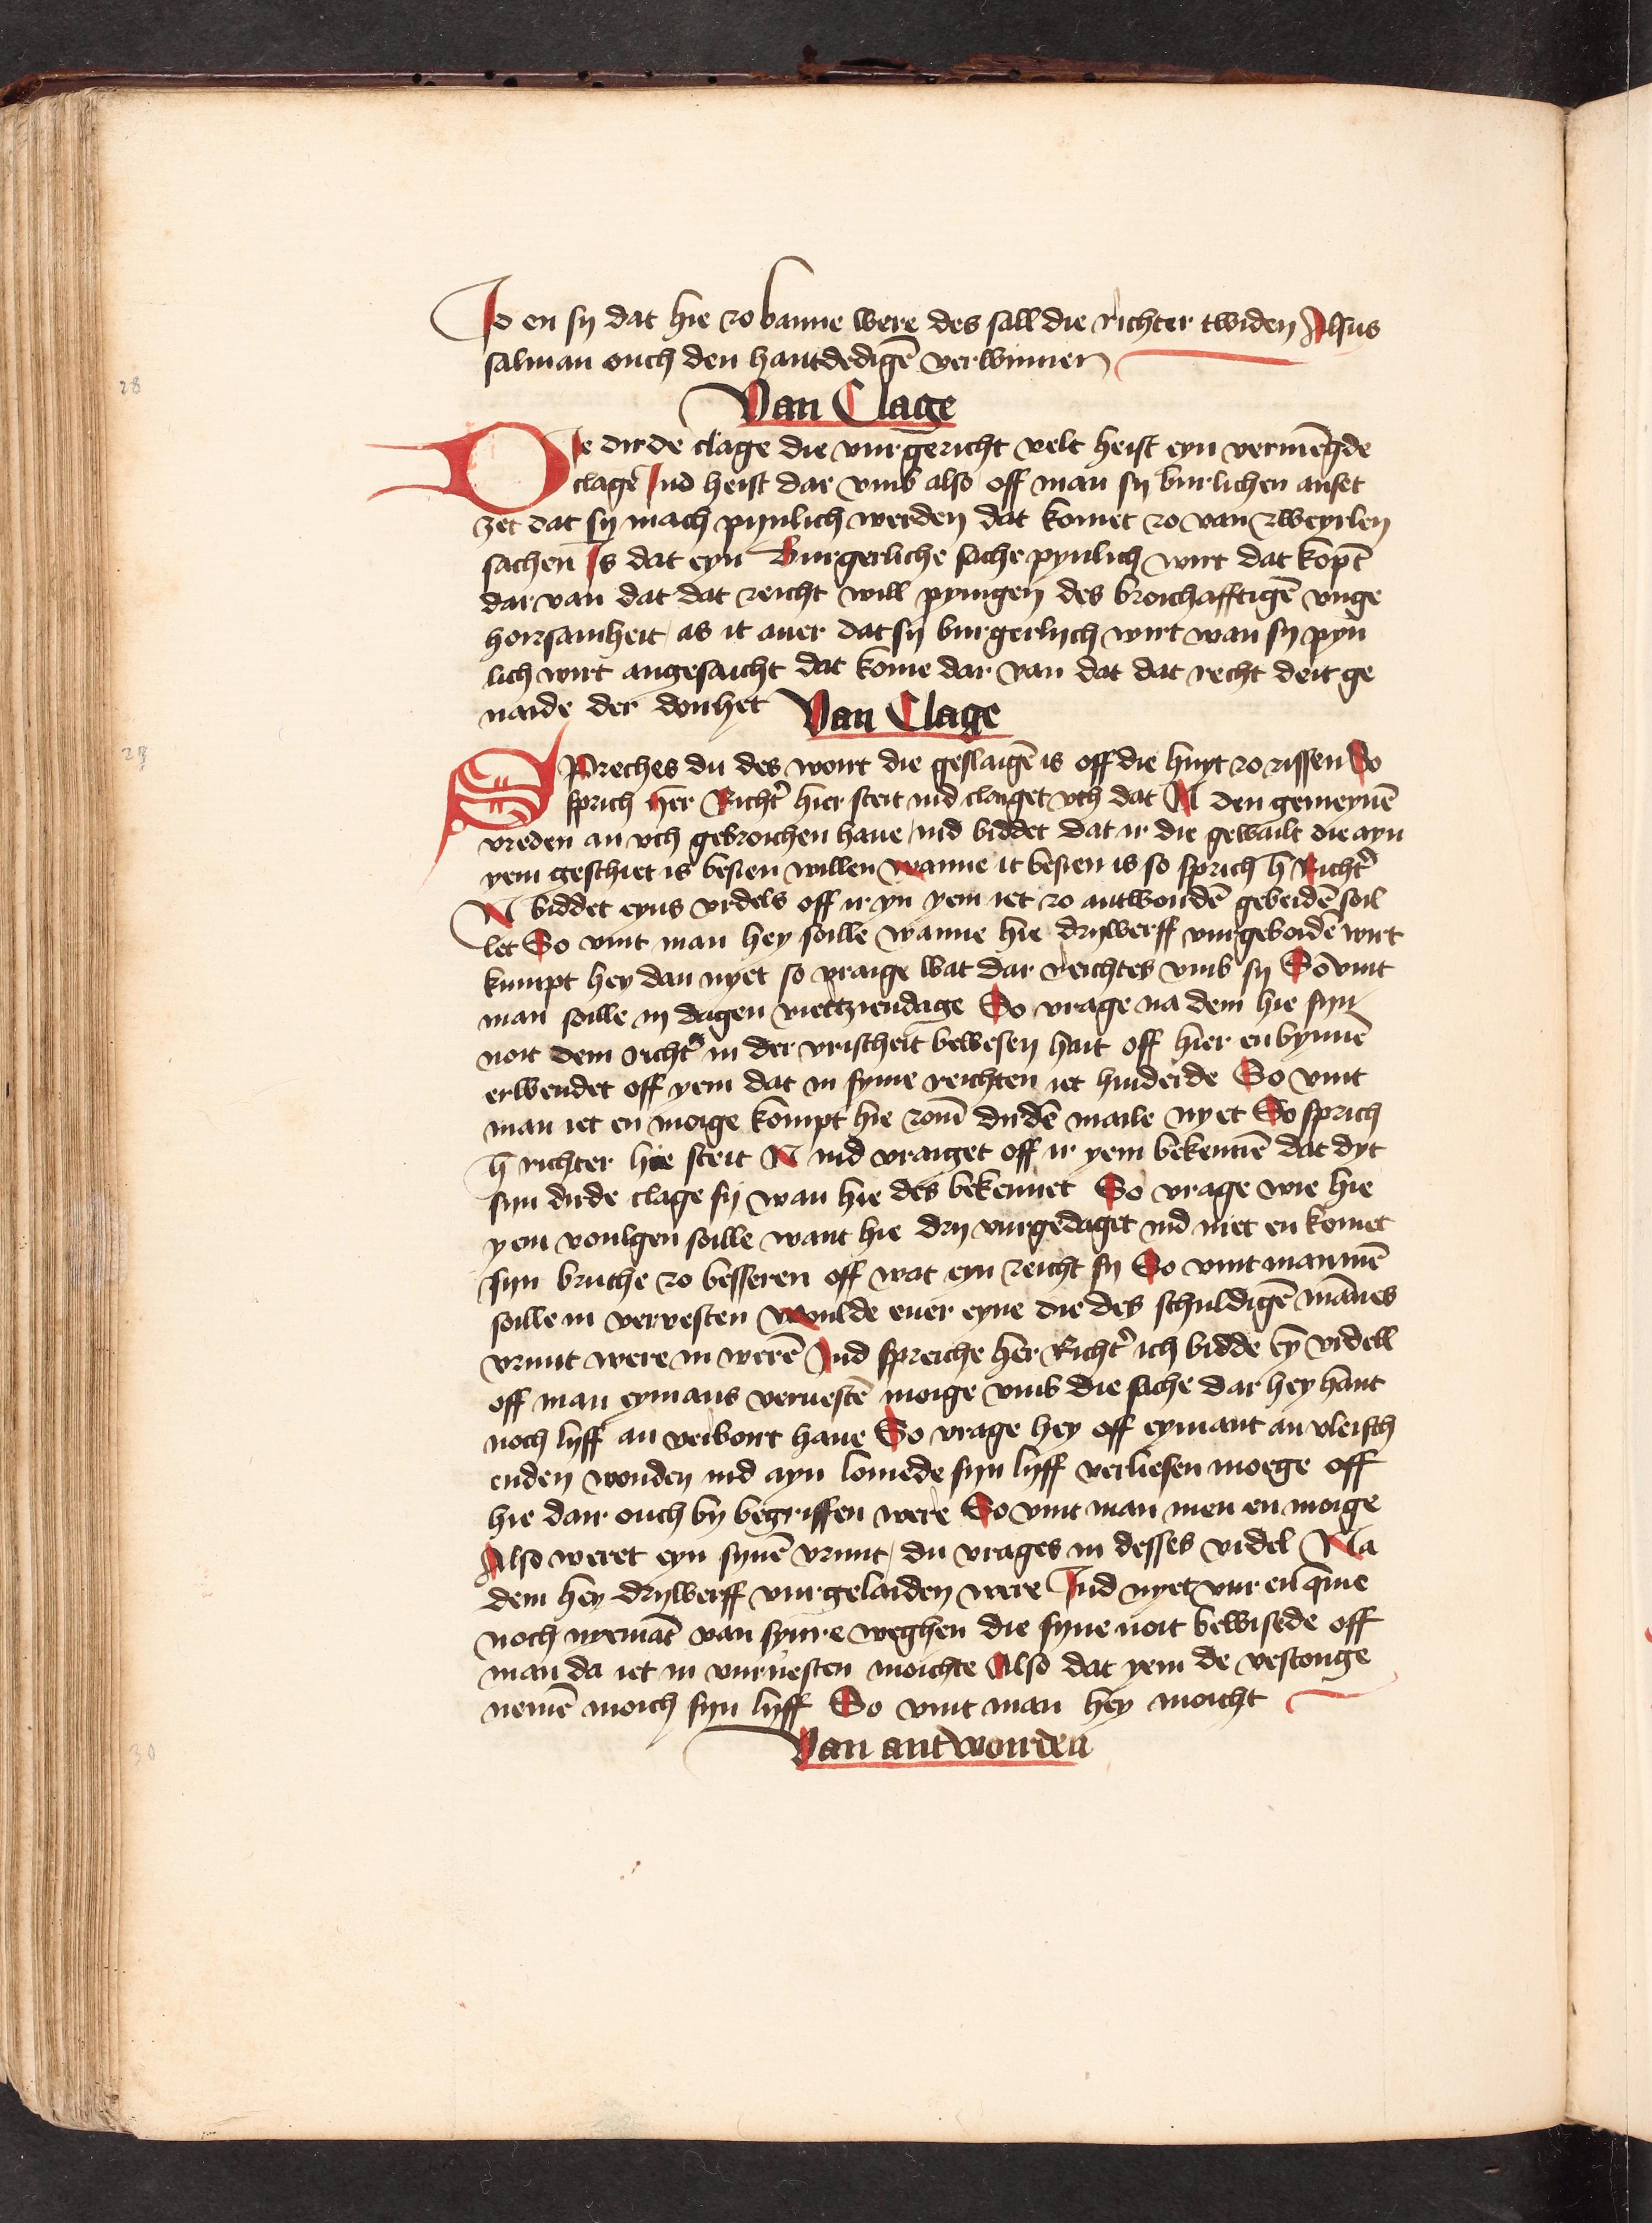 Id en sy dat hie zo banne were des sall die richter twiden Alsus
salman ouch den hantdedigē verwinnen
28
Van Clage
Die dirde clage die vurgericht velt heist eyn vermēgde
clage Ind heist dar vmb also off man sy burlichen anset
zet dat sy mach pynlich werden dat komet zo van zweyrley
sachen Is dat eyn Burgerliche sache pynlich wirt dat kopt
dar van dat dat reicht will pynigen des broichafftigē vnge
hoirsamheit as it auer dat sy burgerlich wirt wan sy pyn
lich wirt angesaicht dat kome dar van dat dat recht deit ge
naide der donhet Van Clage
29
SPreches du des wont die geslaigē is off die huyt zo rissen So
sprich her Richt' hier steit ind claiget vch dat N den gemeynē
vreden an vch gebroichen haue ind biddet dat ir die gewailt die ayn
yem geschiet is besien willen wanne it besien is so sprich h Richt'
N biddet eyns vrdels off ir yn yem iet zo antwordē gebeidē soil
let So vint man hey soille wanne hie drywerff vurgebodē wirt
kumpt hey dan nyet so vraige wat dar reichtes vmb sy So vint
man soille in dagen viertziendage So vrage na dem hie syn
noit dem richt' in der vrischeit bewesen hait off hier enbynnē
erwendet off yem dat in syme reichten iet hinderde So vint
man iet en moige kompt hie zom dirdē maile nyet So sprich
h richter hie steit N ind vraiget off ir yem bekennē dat dyt
syn dirde clage sy wan hie des bekennet So vrage wie hie
yem voulgen soille want hie dry vurgedaget ind niet en komet
syn bruche zo besseren off wat eyn reicht sy So vint man men
soille in vervesten Woulde euer eyne die des schuldigē mānes
vrunt were in werē Ind spreiche her Richt' ich bidde ey vrdell
off man eymans veruestē moige vmb die sache dar hey hant
noch lyff an verbort haue So vrage hey off eymant an vleisch
enden wonden ind ayn lomede syn lyff verliesen moege off
hie dair ouch by begriffen were So vint man men en moige
Also weret eyn synē vrunt / du vrages in desses vrdel Na
dem hey drywerff vurgelaiden were Ind nyet vur en qme
noch nyemāt van synre weghen die syne noit bewisede off
man da iet in vurvesten moichte Also dat yem de vestonge
nemē moich syn lyff So vint man hey moicht
30
Van antworden